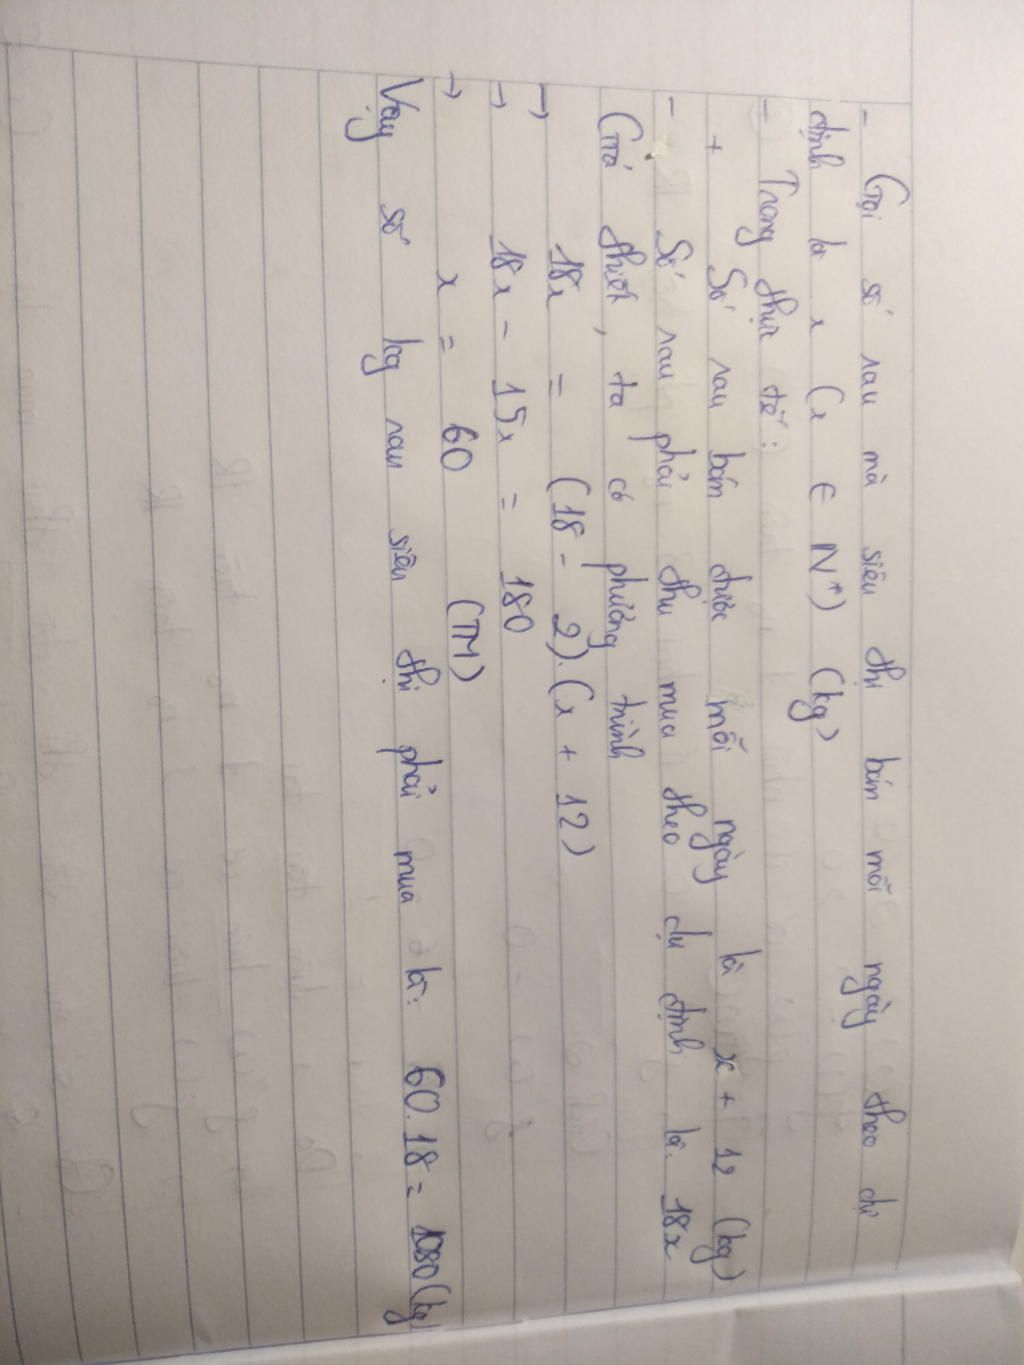 - Gọi số rau mà siêu thị bán mỗi ngày theo dự
định là x (x ∈ N*) (kg)
- Trong thực tế:
+ Số rau bán được mỗi ngày là x + 12 (kg)
- Số rau phải thu mua theo dự định là. 18x
Giả thiết, ta có phương trình
→ 18x = (18 - 2).(x + 12)
→ 18x - 15x = 180
→ x = 60 (TM)
Vậy số kg rau siêu thị phải mua là: 60.18 = 1080 (kg)